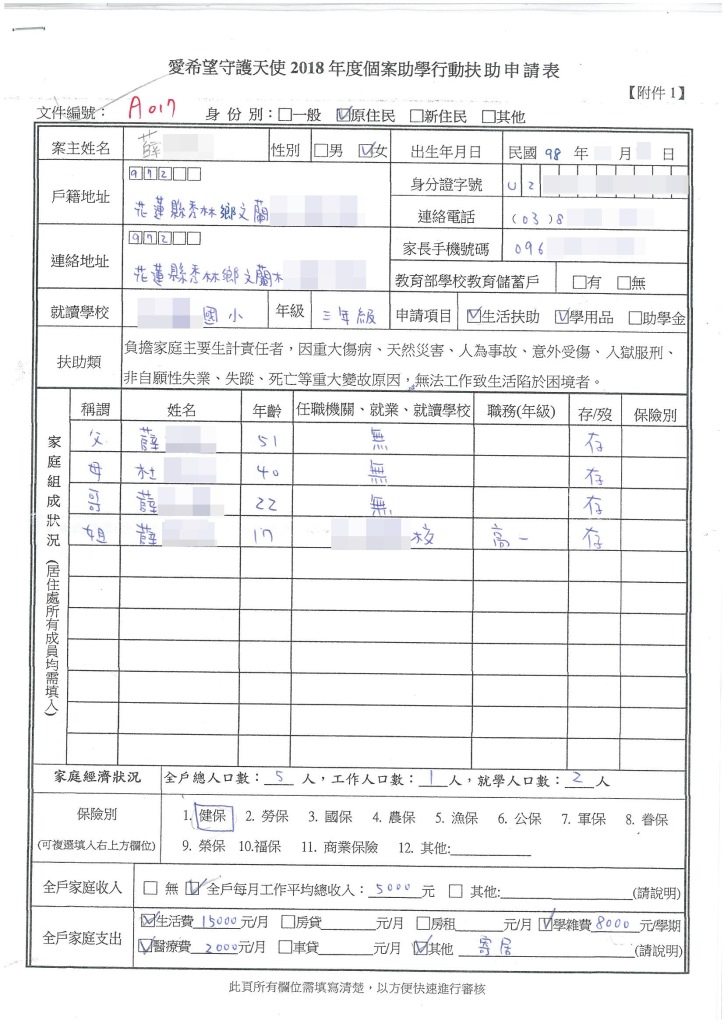 愛希望守護天使 2018 年度個案助學行動扶助申請表
【附件 1】
文件編號： A017 身份別：□一般 ☑原住民 □新住民 □其他
案主姓名 薛 性別 □男 ☑女 出生年月日 民國 98 年 月 日
戶籍地址 972□□ 花蓮縣秀林鄉文蘭
身分證字號 U2
連絡電話 (03)8
連絡地址 972□□ 花蓮縣秀林鄉文蘭村
家長手機號碼 096
教育部學校教育儲蓄戶 □有 □無
就讀學校 國小 年級 三年級 申請項目 ☑生活扶助 ☑學用品 □助學金
扶助類 負擔家庭主要生計責任者，因重大傷病、天然災害、人為事故、意外受傷、入獄服刑、
非自願性失業、失蹤、死亡等重大變故原因，無法工作致生活陷於困境者。
家庭組成狀況(居住處所有成員均需填入)
稱謂 姓名 年齡 任職機關、就業、就讀學校 職務(年級) 存/歿 保險別
父 薛 51 無 存
母 杜 40 無 存
哥 薛 22 無 存
姐 薛 17 校 高一 存
家庭經濟狀況 全戶總人口數：5 人，工作人口數：1 人，就學人口數：2 人
保險別
(可複選填入右上方欄位)
1. 健保 2. 勞保 3. 國保 4. 農保 5. 漁保 6. 公保 7. 軍保 8. 眷保
9. 榮保 10.福保 11. 商業保險 12. 其他:
全戶家庭收入 □ 無 ☑ 全戶每月工作平均總收入：5000 元 □ 其他: (請說明)
全戶家庭支出 ☑生活費 15000 元/月 □房貸 元/月 □房租 元/月 ☑學雜費 8000 元/學期
☑醫療費 2000 元/月 □車貸 元/月 ☑其他 寄居 (請說明)
此頁所有欄位需填寫清楚，以方便快速進行審核